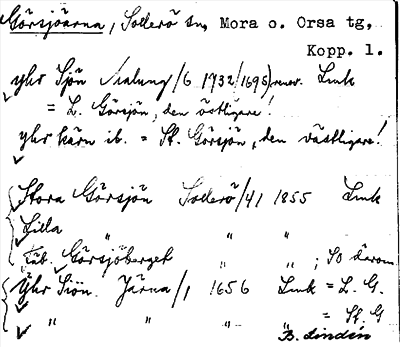 Görsjöarna, Sollerö sn, Mora o. Orsa tg,
Kopp. l.
yhr Sjön Malung/6 1732/1695) renov. Lmk
= L. Görsjön, den östligare!
yhr kärn ib. = St. Görsjön, den västligare!
Stora Görsjön Sollerö/41 1855 Lmk
Lilla " "
täb. Görsjöberget " " ; SO därom
Yhr Siön. Järna/1 1656 Lmk = L. G.
" " " " = St. G
B. Lindén